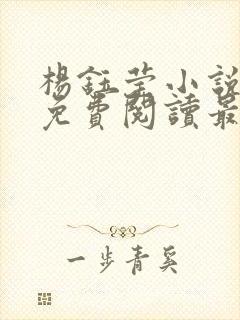 楊鈺莹小說
免費閱讀最
一步青奚